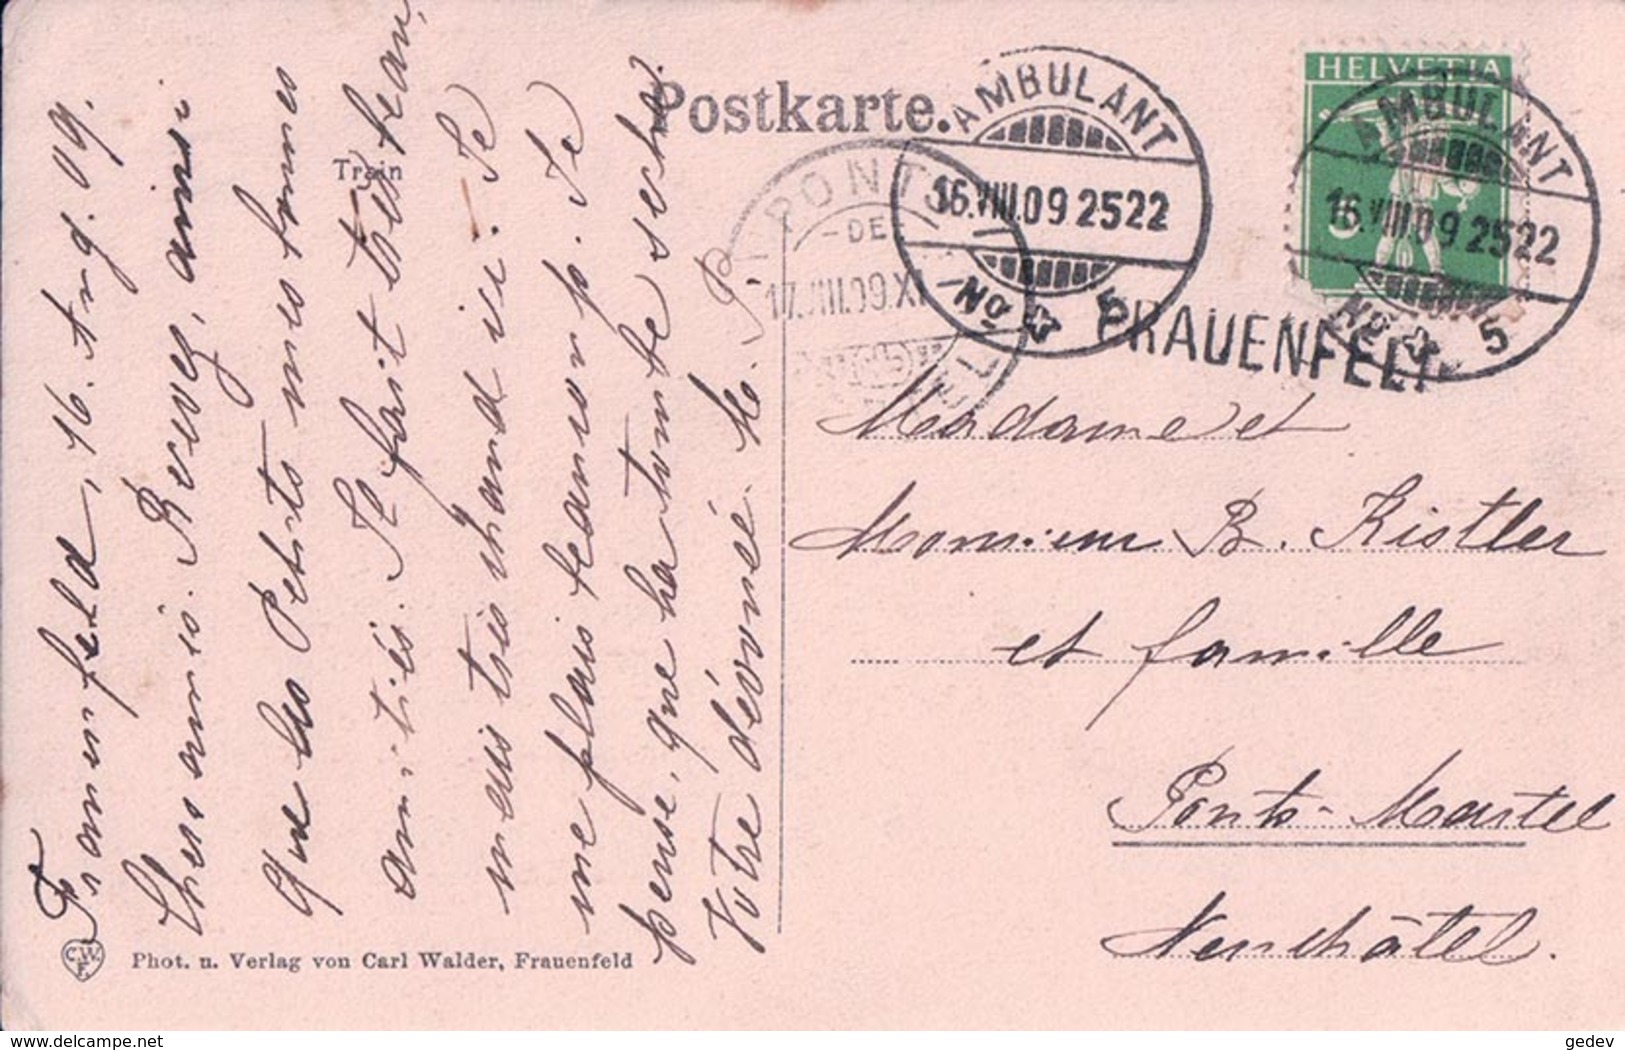 Postkarte.
Train
HELVETIA
5
AMBULANT
16.VIII.09 2522
No 5
AMBULANT
16.VIII.09 2522
No 5
PONTS
DE
17.VIII.09.XI
FRAUENFELD
Frauenfeld, 16. Aug. 09.
Chers amis. Recevez, ainsi
que les Petits mes bonnes
amitiés. Il fait très beau,
mais très chaud ici. Je
me plais beaucoup. Je
pense, que ha tombe sera
Votre dévouée M. P.
Madame et
Monsieur B. Kistler
et famille
Ponts-Martel
Neuchâtel.
C.W.
F.
Phot. u. Verlag von Carl Walder, Frauenfeld
delcampe.net
gedev